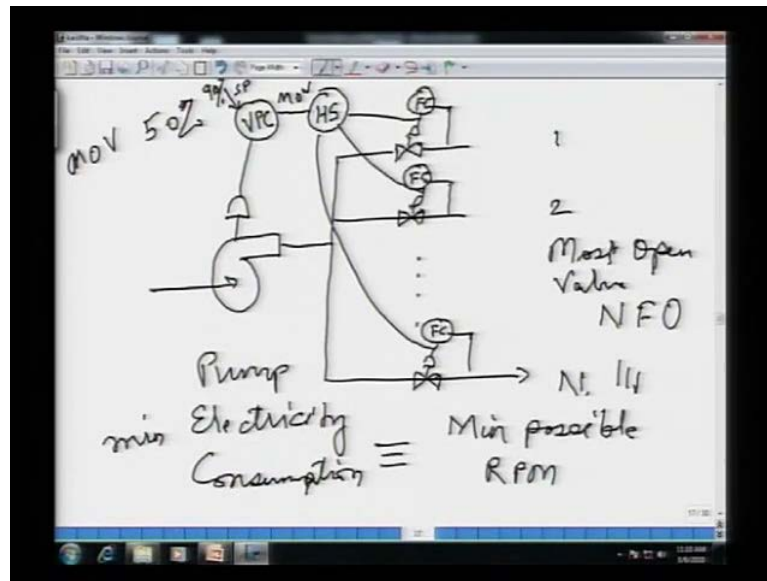 File Edit View Insert Actions Tools Help
Page Width
MOV 50%
90% SP
VPC
MOV
HS
FC
1
FC
2
Most Open
Valve
NFO
FC
N.
Pump
min Electricity
Consumption
≡
Min possible
RPM
17/30